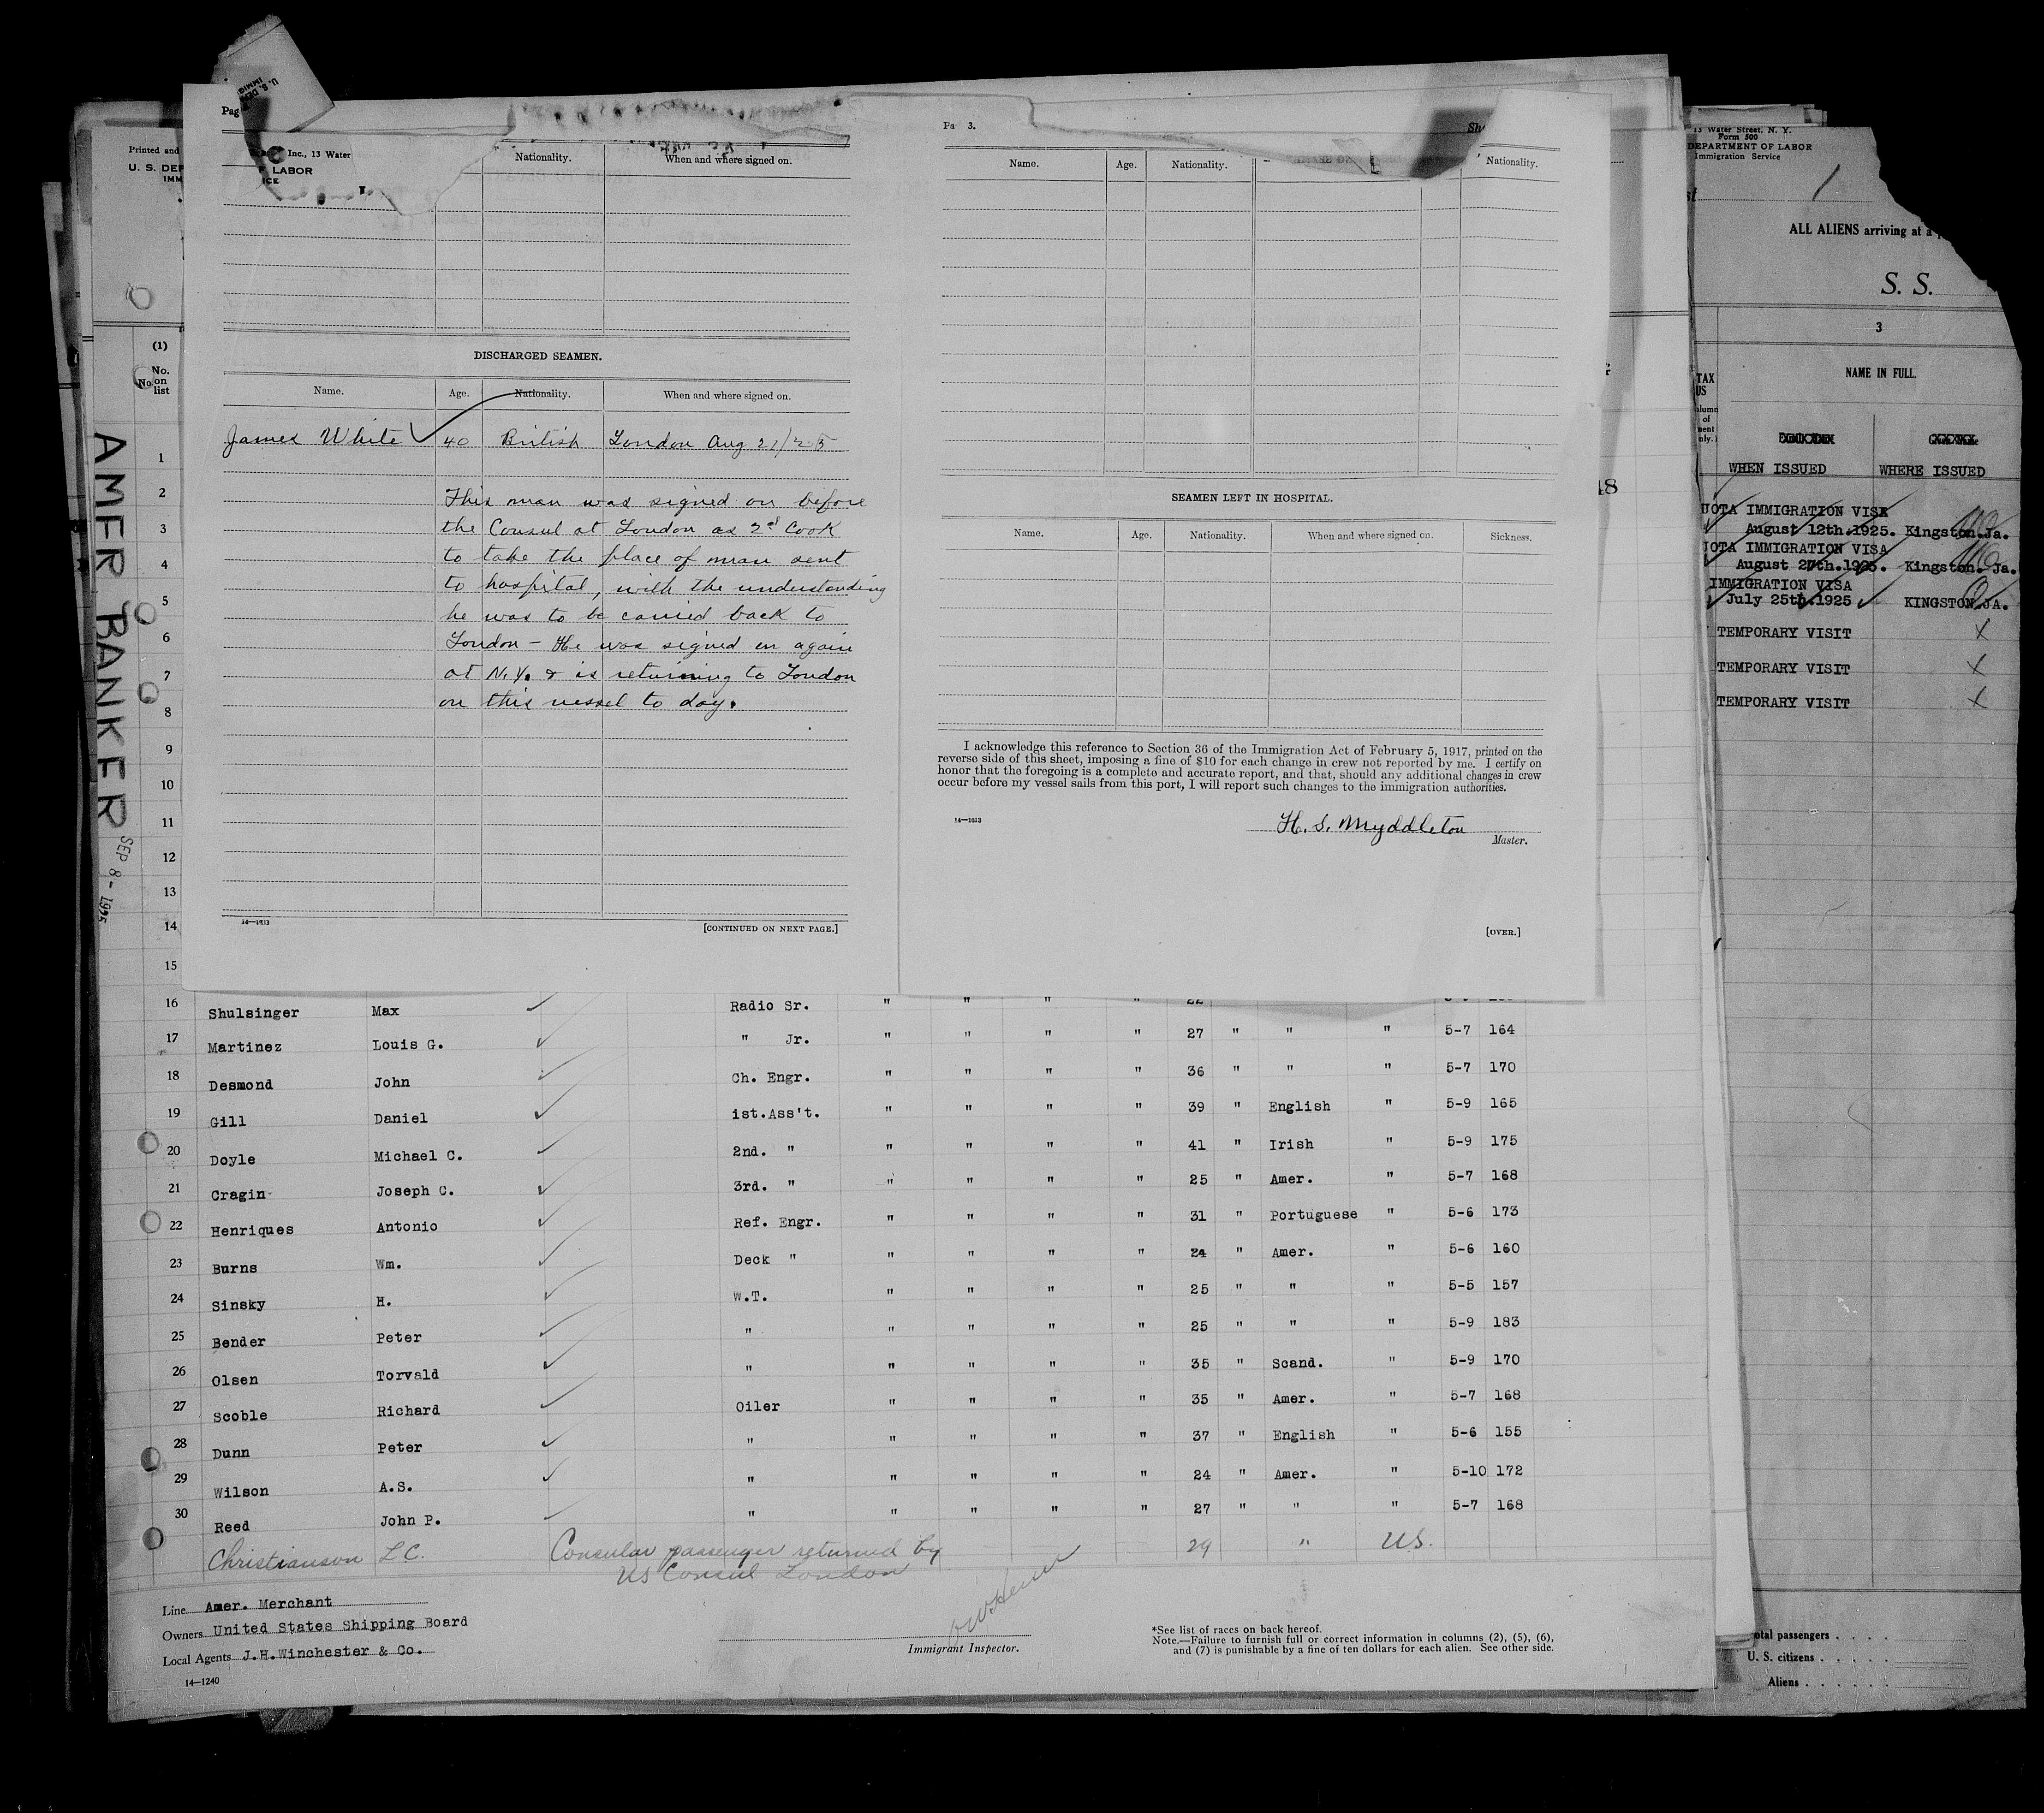 U. S. DE
IMMIG
Printed and
U. S. DEP
IMM
Inc., 13 Water
LABOR
ICE
Nationality.
When and where signed on.
DISCHARGED SEAMEN.
Name.
Age.
Nationality.
When and where signed on.
James White
40
British
London Aug 21/25
This man was signed on before
the Consul at London as 2nd Cook
to take the place of man sent
to hospital, with the understanding
he was to be carried back to
London - He was signed on again
at N.Y. & is returning to London
on this vessel to day.
14—1613
[CONTINUED ON NEXT PAGE.]
3.
Name.
Age.
Nationality.
Nationality.
SEAMEN LEFT IN HOSPITAL.
Name.
Age.
Nationality.
When and where signed on.
Sickness.
I acknowledge this reference to Section 36 of the Immigration Act of February 5, 1917, printed on the
reverse side of this sheet, imposing a fine of $10 for each change in crew not reported by me. I certify on
honor that the foregoing is a complete and accurate report, and that, should any additional changes in crew
occur before my vessel sails from this port, I will report such changes to the immigration authorities.
14—1613
H. S. Myddleton
Master.
[OVER.]
(1)
No.
on
list
AMER BANKER
SEP 8 - 1925
1
2
3
4
5
6
7
8
9
10
11
12
13
14
15
16 Shulsinger Max Radio Sr. " " " " 22
17 Martinez Louis G. " Jr. " " " " 27 " " " 5-7 164
18 Desmond John Ch. Engr. " " " " 36 " " " 5-7 170
19 Gill Daniel 1st.Ass't. " " " " 39 " English " 5-9 165
20 Doyle Michael C. 2nd. " " " " " 41 " Irish " 5-9 175
21 Cragin Joseph C. 3rd. " " " " " 25 " Amer. " 5-7 168
22 Henriques Antonio Ref. Engr. " " " " 31 " Portuguese " 5-6 173
23 Burns Wm. Deck " " " " " 24 " Amer. " 5-6 160
24 Sinsky H. W.T. " " " " 25 " " " 5-5 157
25 Bender Peter " " " " " 25 " " " 5-9 183
26 Olsen Torvald " " " " " 35 " Scand. " 5-9 170
27 Scoble Richard Oiler " " " " 35 " Amer. " 5-7 168
28 Dunn Peter " " " " " 37 " English " 5-6 155
29 Wilson A.S. " " " " " 24 " Amer. " 5-10 172
30 Reed John P. " " " " " 27 " " " 5-7 168
Christianson L.C. Consular passenger returned by 29 " US.
US Consul London
Line Amer. Merchant
Owners United States Shipping Board
Local Agents J.H.Winchester & Co.
14—1240
Immigrant Inspector.
*See list of races on back hereof.
Note.—Failure to furnish full or correct information in columns (2), (5), (6),
and (7) is punishable by a fine of ten dollars for each alien. See other side.
18
13 Water Street, N. Y.
Form 500
DEPARTMENT OF LABOR
Immigration Service
1
ALL ALIENS arriving at a
S. S.
3
TAX
US
NAME IN FULL.
WHEN ISSUED
WHERE ISSUED
UOTA IMMIGRATION VISA
August 12th.1925. Kingston.Ja.
UOTA IMMIGRATION VISA
August 27th.1925. Kingston. Ja.
IMMIGRATION VISA
July 25th.1925 KINGSTON.JA.
TEMPORARY VISIT X
TEMPORARY VISIT X
TEMPORARY VISIT X
otal passengers
U. S. citizens
Aliens